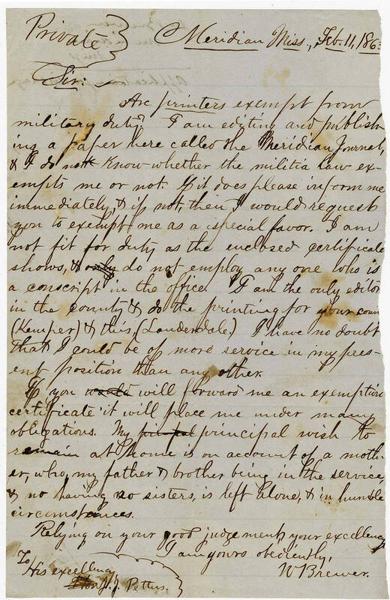 Private } Meridian Miss., Feb. 11, 186
Sir:
Are printers exempt from
military duty? I am editing and publish
ing a paper here called the Meridian Journal,
& I do not know whether the militia law ex-
empts me or not. If it does please inform me
immediately, & if not, then I would request
you to exempt me as a special favor. I am
not fit for duty as the enclosed certificate
shows, & only do not employ any one who is
a conscript in the office. I am the only editor
in the county & do the printing for your county
(Kemper) & this (Lauderdale) I have no doubt
that I could be of more service in my pres-
ent position than any other.
If you would will forward me an exemption
certificate it will place me under many
obligations. My principal wish to
remain at home is on account of a moth-
er, who, my father & brother being in the service,
& no having no sisters, is left alone, & in humble
circumstances.
Relying on your good judgement, your excellency
I am yours obediently,
W Brewer.
To
His excellency
J. J. Pettus.